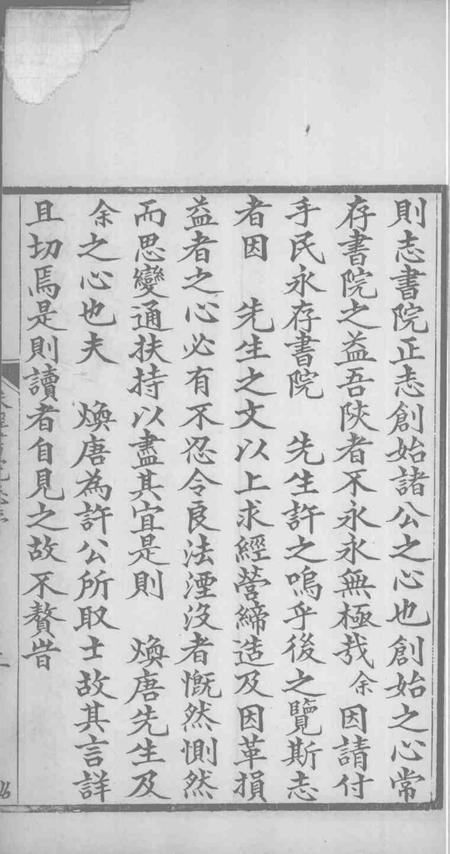 則志書院正志創始諸公之心也創始之心常
存書院之益吾陝者不永永無極哉余因請付
手民永存書院　先生許之嗚乎後之覽斯志
者因　先生之文以上求經營締造及因革損
益者之心必有不忍令良法湮沒者慨然惻然
而思變通扶持以盡其宜是則　煥唐先生及
余之心也夫　煥唐為許公所取士故其言詳
且切焉是則讀者自見之故不贅昔